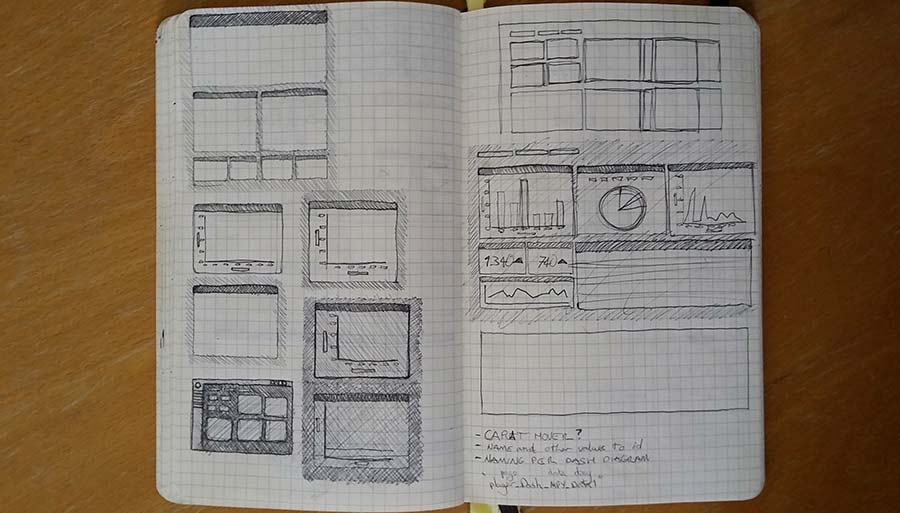 1.340 740
- CARAT HOVER?
- NAME and other values to id
- NAMING PER DASH DIAGRAM
page data diag